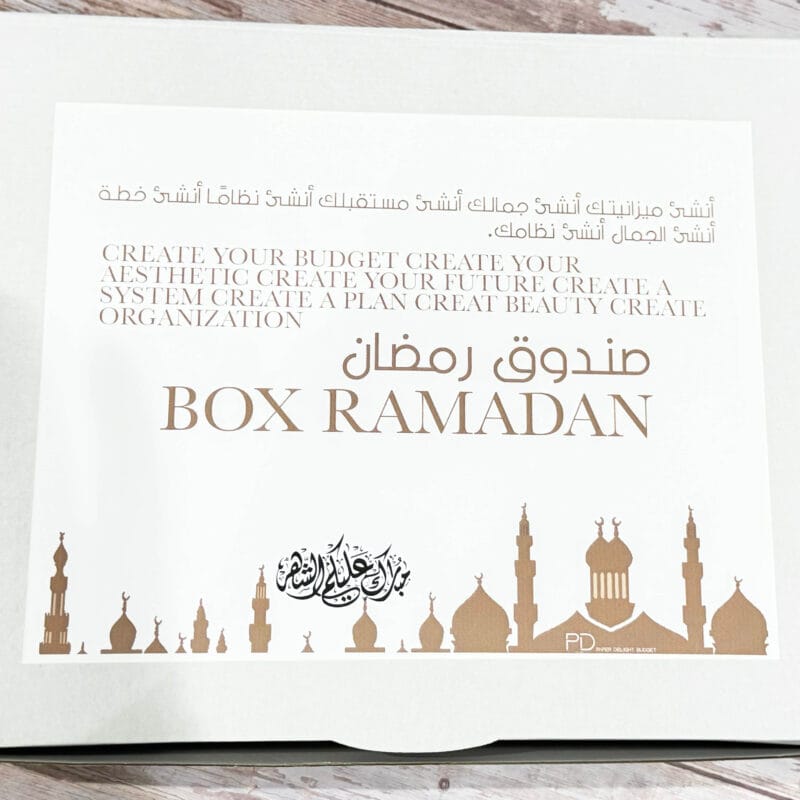 أنشئ ميزانيتك أنشئ جمالك أنشئ مستقبلك أنشئ نظامًا أنشئ خطة
أنشئ الجمال أنشئ نظامك.
CREATE YOUR BUDGET CREATE YOUR
AESTHETIC CREATE YOUR FUTURE CREATE A
SYSTEM CREATE A PLAN CREAT BEAUTY CREATE
ORGANIZATION
صندوق رمضان
BOX RAMADAN
مبارك عليكم الشهر
PD PAPER DELIGHT BUDGET